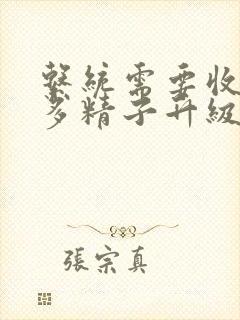 繫統需要收
多精子升級
張宗真